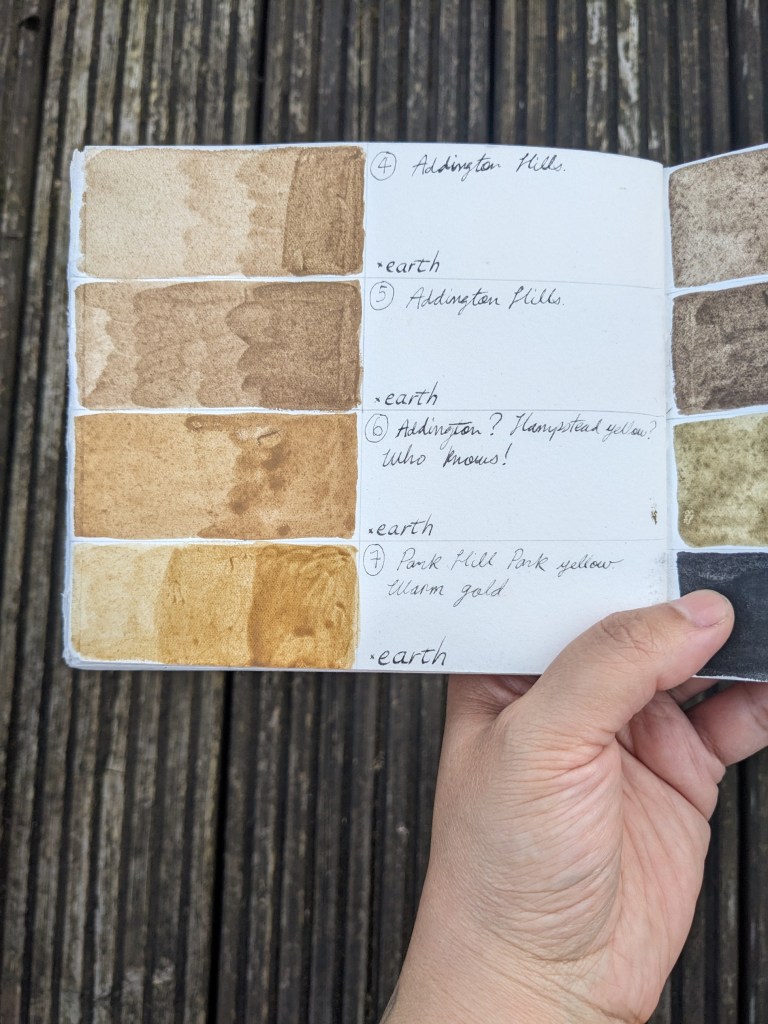 ④ Addington Hills.
*earth
⑤ Addington Hills.
*earth
⑥ Addington? Hampstead yellow?
Who knows!
*earth
⑦ Park Hill Park yellow
Warm gold
*earth